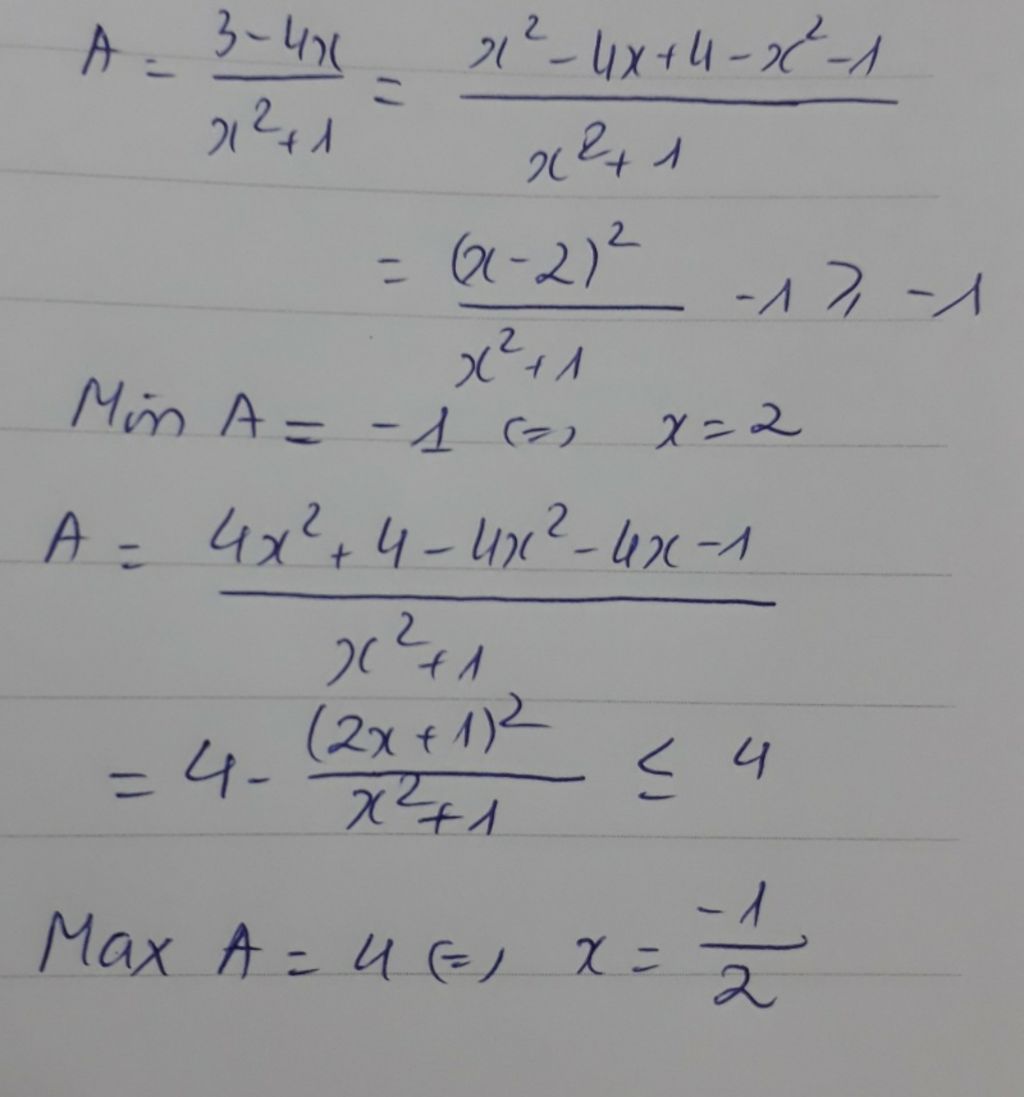 A = (3-4x)/(x²+1) = (x²-4x+4-x²-1)/(x²+1)
= (x-2)²/(x²+1) -1 ⩾ -1
Min A = -1 (=) x=2
A = (4x²+4-4x²-4x-1)/(x²+1)
= 4- (2x+1)²/(x²+1) ≤ 4
Max A = 4 (=) x = -1/2